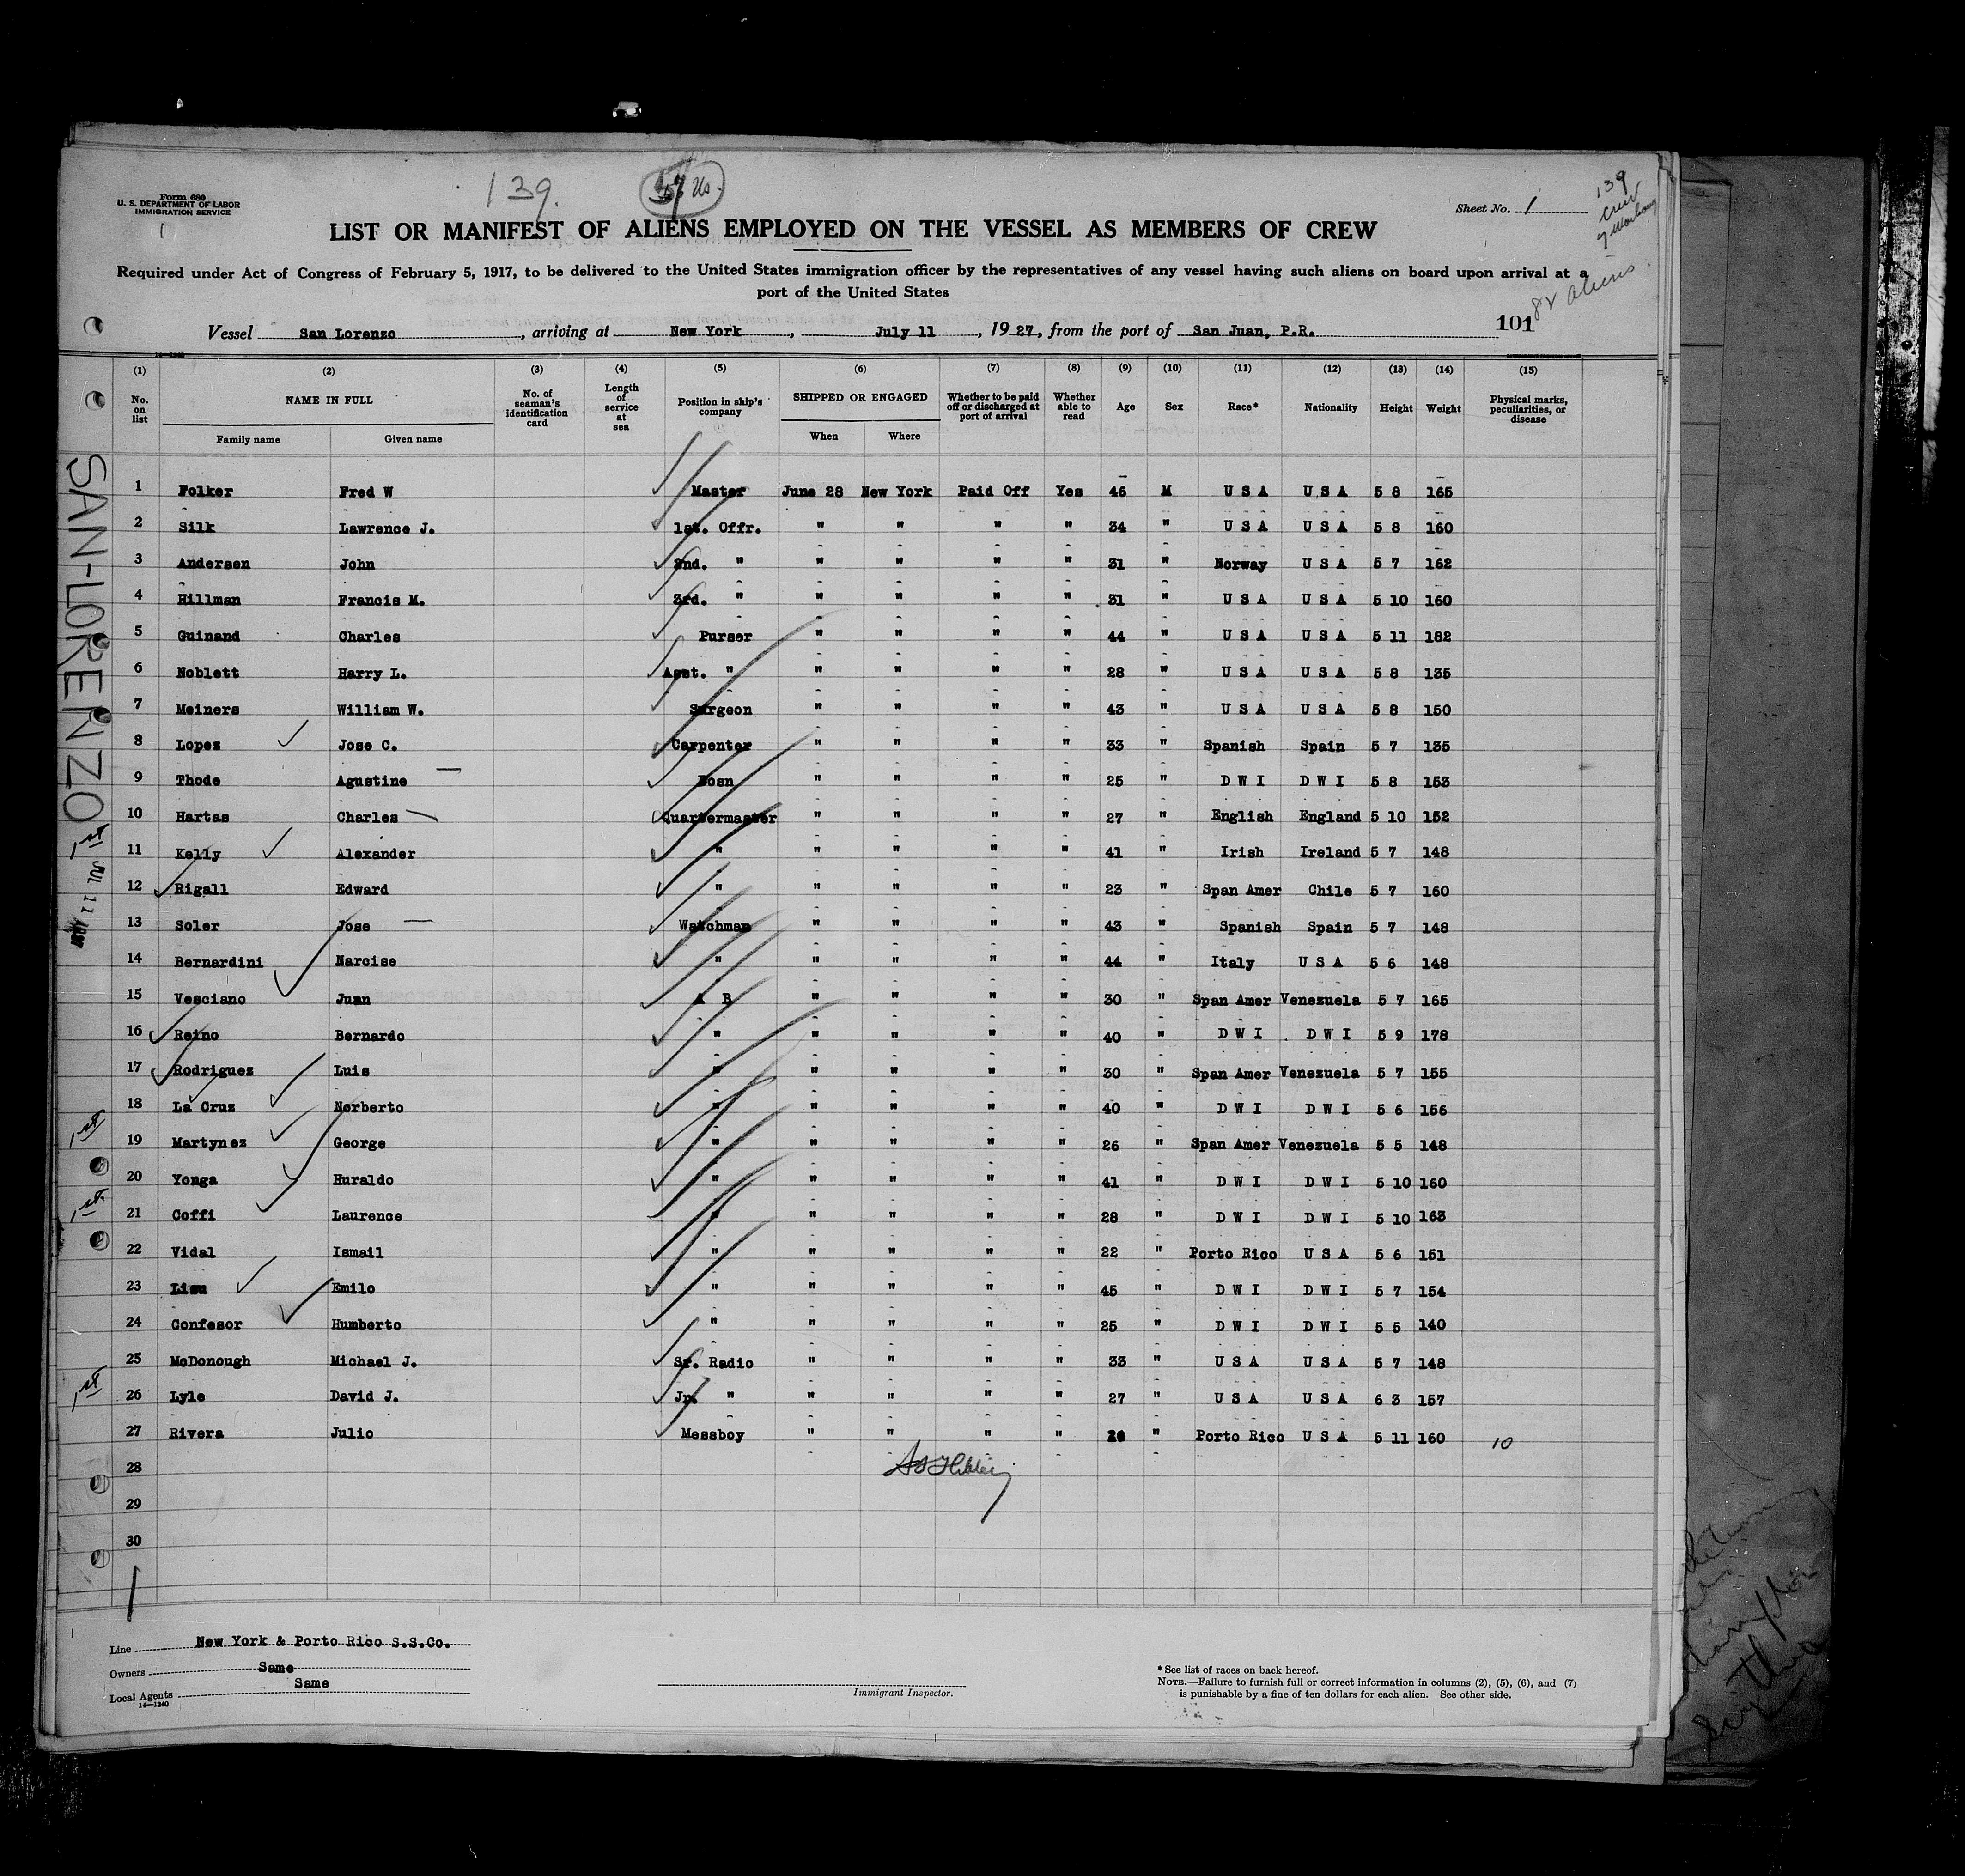 139.
Form 680
U. S. DEPARTMENT OF LABOR
IMMIGRATION SERVICE
Sheet No. 1
139
crew
LIST OR MANIFEST OF ALIENS EMPLOYED ON THE VESSEL AS MEMBERS OF CREW
Required under Act of Congress of February 5, 1917, to be delivered to the United States immigration officer by the representatives of any vessel having such aliens on board upon arrival at a
port of the United States
82 aliens.
Vessel San Lorenzo, arriving at New York, July 11, 1927, from the port of San Juan, P.R. 101
14—1240
(1) (2) (3) (4) (5) (6) (7) (8) (9) (10) (11) (12) (13) (14) (15)
No. on list NAME IN FULL No. of seaman's identification card Length of service at sea Position in ship's company SHIPPED OR ENGAGED Whether to be paid off or discharged at port of arrival Whether able to read Age Sex Race* Nationality Height Weight Physical marks, peculiarities, or disease
Family name Given name When Where
1 Folker Fred W Master June 28 New York Paid Off Yes 46 M U S A U S A 5 8 165
2 Silk Lawrence J. 1st. Offr. " " " " 34 " U S A U S A 5 8 160
3 Andersen John 2nd. " " " " " 31 " Norway U S A 5 7 162
4 Hillman Francis M. 3rd. " " " " " 31 " U S A U S A 5 10 160
5 Guinand Charles Purser " " " " 44 " U S A U S A 5 11 182
6 Noblett Harry L. Asst. " " " " " 28 " U S A U S A 5 8 135
7 Meiners William W. Surgeon " " " " 43 " U S A U S A 5 8 150
8 Lopez Jose C. Carpenter " " " " 33 " Spanish Spain 5 7 135
9 Thode Agustine Bosn " " " " 25 " D W I D W I 5 8 153
10 Hartas Charles Quartermaster " " " " 27 " English England 5 10 152
11 Kelly Alexander " " " " " 41 " Irish Ireland 5 7 148
12 Rigall Edward " " " " " 23 " Span Amer Chile 5 7 160
13 Soler Jose Watchman " " " " 43 " Spanish Spain 5 7 148
14 Bernardini Narcise " " " " " 44 " Italy U S A 5 6 148
15 Vesciano Juan A B " " " " 30 " Span Amer Venezuela 5 7 165
16 Reino Bernardo " " " " " 40 " D W I D W I 5 9 178
17 Rodriguez Luis " " " " " 30 " Span Amer Venezuela 5 7 155
18 La Cruz Norberto " " " " " 40 " D W I D W I 5 6 156
19 Martynez George " " " " " 26 " Span Amer Venezuela 5 5 148
20 Yonga Huraldo " " " " " 41 " D W I D W I 5 10 160
21 Coffi Laurence " " " " " 28 " D W I D W I 5 10 163
22 Vidal Ismail " " " " " 22 " Porto Rico U S A 5 6 151
23 Emilo " " " " " 45 " D W I D W I 5 7 154
24 Confesor Humberto " " " " " 25 " D W I D W I 5 5 140
25 McDonough Michael J. Sr. Radio " " " " 33 " U S A U S A 5 7 148
26 Lyle David J. Jr. " " " " " 27 " U S A U S A 6 3 157
27 Rivera Julio Messboy " " " " " Porto Rico U S A 5 11 160 10
28
29
30
SAN-LORENZO
JUL 11
1st
1st
1st
Line New York & Porto Rico S.S.Co.
Owners Same
Local Agents Same
14—1240
Immigrant Inspector.
*See list of races on back hereof.
NOTE.—Failure to furnish full or correct information in columns (2), (5), (6), and (7)
is punishable by a fine of ten dollars for each alien. See other side.